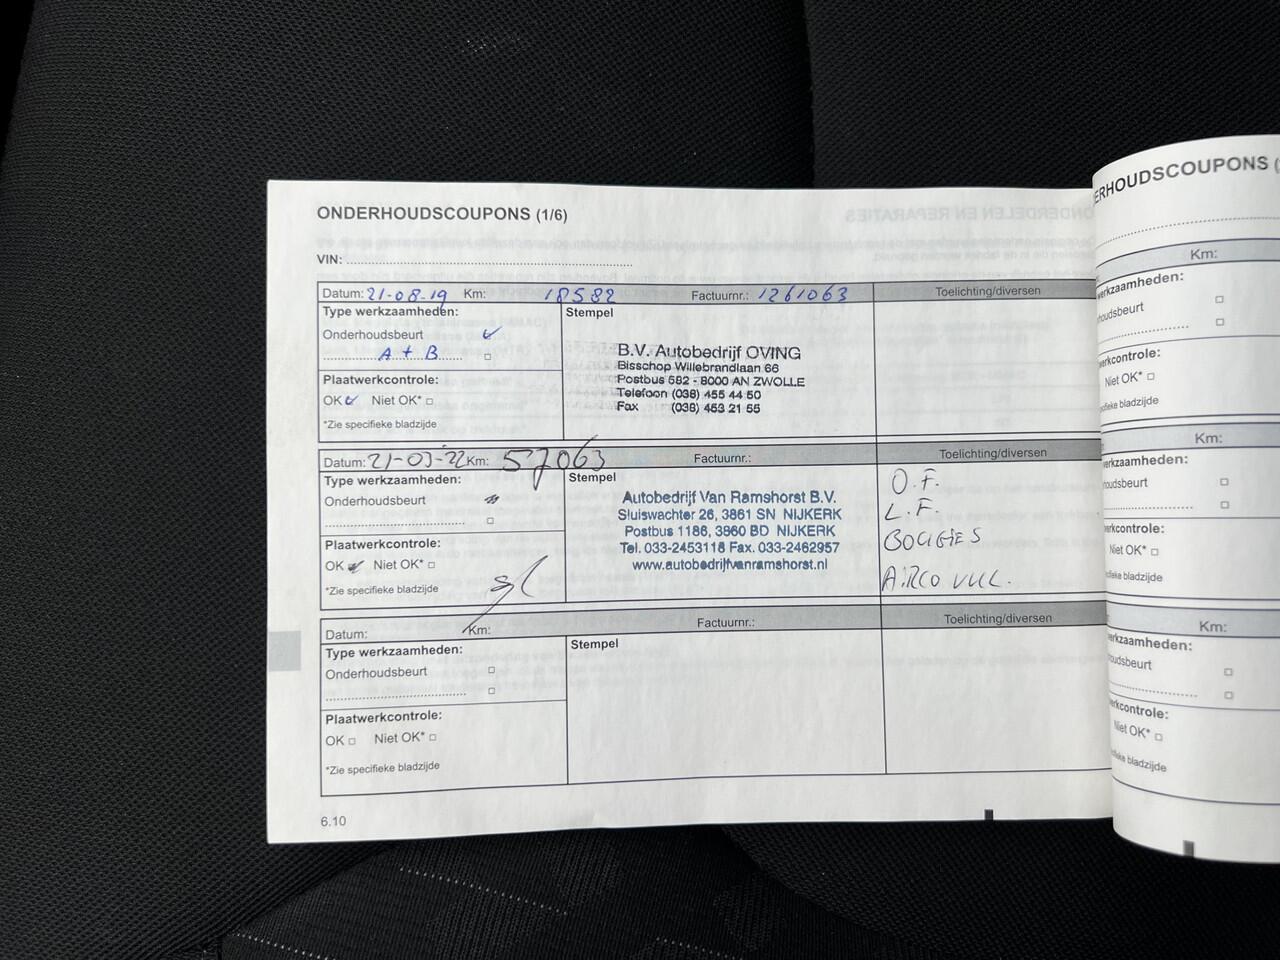 ONDERHOUDSCOUPONS (1/6)
VIN:
Datum: 21-08-19 Km: 18582 Factuurnr.: 1261063 Toelichting/diversen
Type werkzaamheden:
Onderhoudsbeurt
A + B
Plaatwerkcontrole:
OK Niet OK*
*Zie specifieke bladzijde
Stempel
B.V. Autobedrijf OVING
Bisschop Willebrandlaan 66
Postbus 582 - 8000 AN ZWOLLE
Telefoon (038) 455 44 50
Fax (038) 453 21 55
Datum: 21-03-22 Km: 57063 Factuurnr.: Toelichting/diversen
Type werkzaamheden:
Onderhoudsbeurt
Plaatwerkcontrole:
OK Niet OK*
*Zie specifieke bladzijde
Stempel
Autobedrijf Van Ramshorst B.V.
Sluiswachter 26, 3861 SN NIJKERK
Postbus 1186, 3860 BD NIJKERK
Tel. 033-2453118 Fax. 033-2462957
www.autobedrijfvanramshorst.nl
O.F.
L.F.
BOUGIES
AIRCO VUL.
Datum: Km: Factuurnr.: Toelichting/diversen
Type werkzaamheden:
Onderhoudsbeurt
Plaatwerkcontrole:
OK Niet OK*
*Zie specifieke bladzijde
Stempel
6.10
ERHOUDSCOUPONS (
Km:
erkzaamheden:
houdsbeurt
erkcontrole:
Niet OK*
ecifieke bladzijde
Km:
erkzaamheden:
houdsbeurt
erkcontrole:
Niet OK*
ecifieke bladzijde
Km:
erkzaamheden:
oudsbeurt
rkcontrole:
Niet OK*
ifieke bladzijde